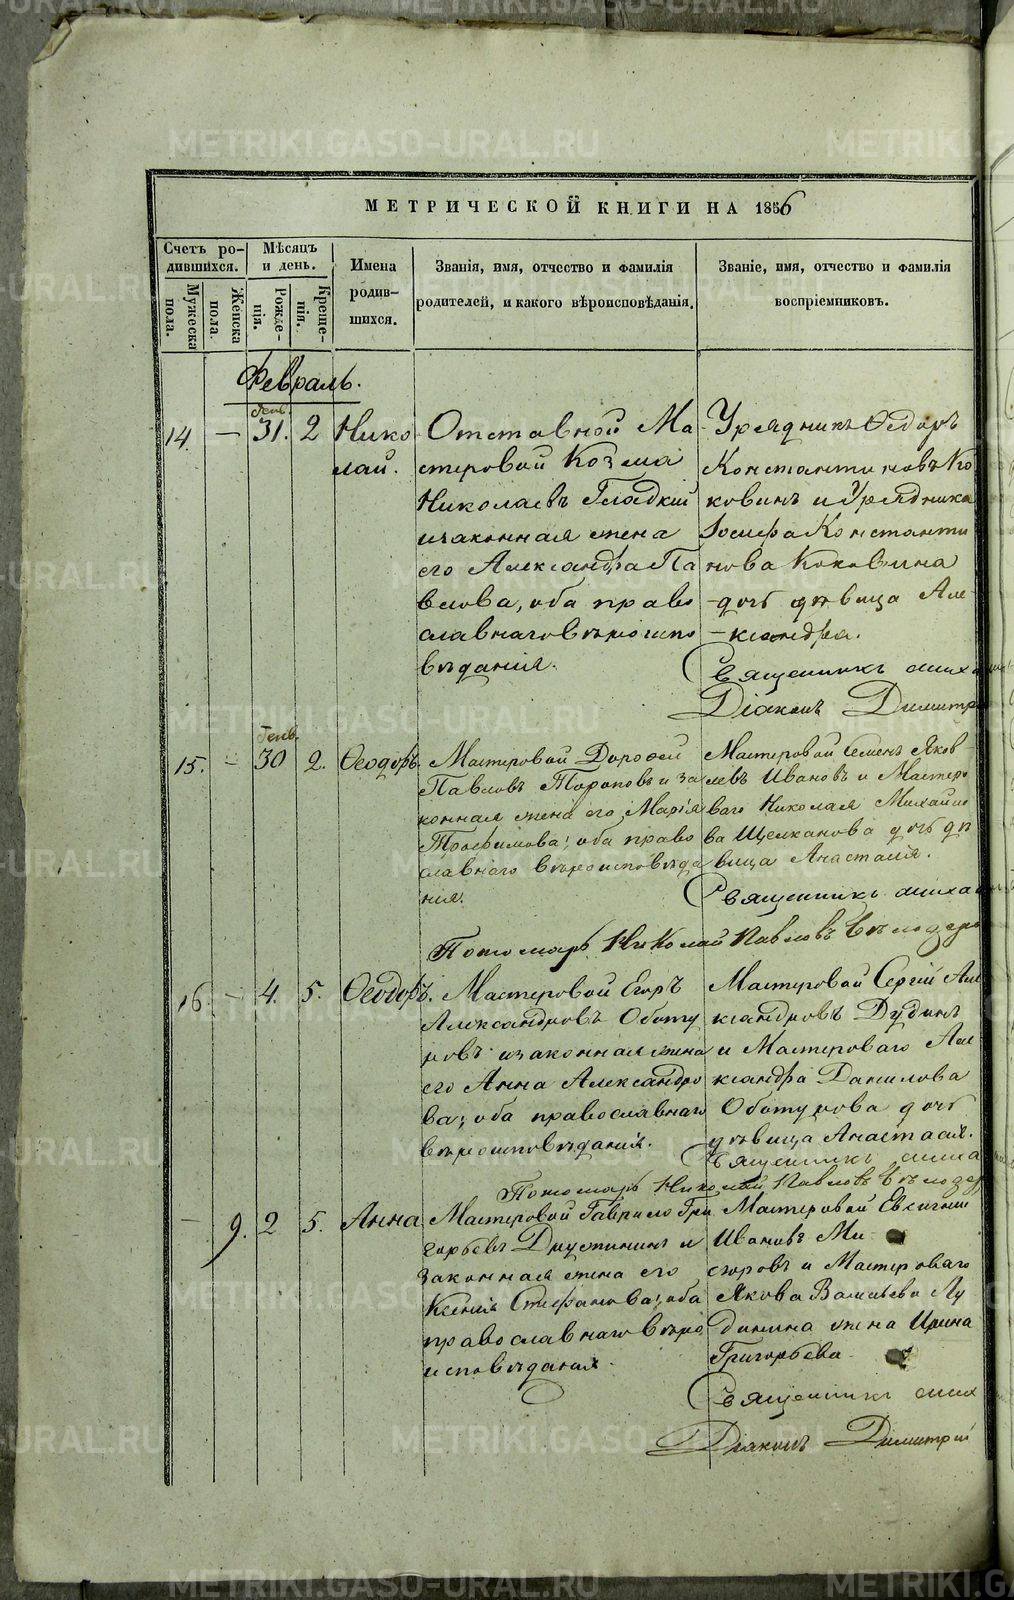 METRIKI.GASO-URAL.RU
МЕТРИЧЕСКОЙ КНИГИ НА 1856
Счетъ ро-
дившихся.
Мѣсяцъ
и день.
Имена
родив-
шихся.
Званія, имя, отчество и фамилія
родителей, и какого вѣроисповѣданія.
Званіе, имя, отчество и фамилія
воспріемниковъ.
Мужеска
пола.
Женска
пола.
Рожде-
нія.
Креще-
нія.
Февраль.
14. — Генв. 31. 2 Нико
лай.
Отставной Ма
стеровой Козма
Николаевъ Гладкій
и законная жена
его Александра Па
влова, оба право
славнаго вѣроиспо
вѣданія.
Урядникъ Ѳедоръ
Константиновъ Ко
ковинъ и Урядника
Іосифа Константи
нова Коковина
дочь дѣвица Але-
ксандра.
Священникъ Миха
Діаконъ Димитрі
15. — Генв. 30 2. Ѳеодоръ.
Мастеровой Дороѳей
Павловъ Тороповъ и за
конная жена его Марія
Трофимова; оба право
славнаго вѣроисповѣда
нія.
Мастеровой Семенъ Яков-
левъ Ивановъ и Мастеро
ваго Николая Михайло
ва Щелканова дочь дѣ
вица Анастасія.
Священникъ Миха
Пономарь Николай Павловъ
16. — 4. 5. Ѳеодоръ.
Мастеровой Егоръ
Александровъ Оботу
ровъ и законная жена
его Анна Александро
ва; оба православнаго
вѣроисповѣданія.
Мастеровой Сергій Але
ксандровъ Дудинъ
и Мастероваго Але
ксандра Данилова
Оботурова дочь
дѣвица Анастасія.
Священникъ Миха
Пономарь Николай Павловъ
— 9. 2 5. Анна
Мастеровой Гаврило Гри
горьевъ Дцустининъ и
законная жена его
Ксенія Стефанова; оба
православнаго вѣро
исповѣданія.
Мастеровой Евгеній
Ивановъ Ми-
сюровъ и Мастероваго
Якова Васильева Лу
динина жена Ирина
Григорьева
Священникъ Мих
Діаконъ Димитрій